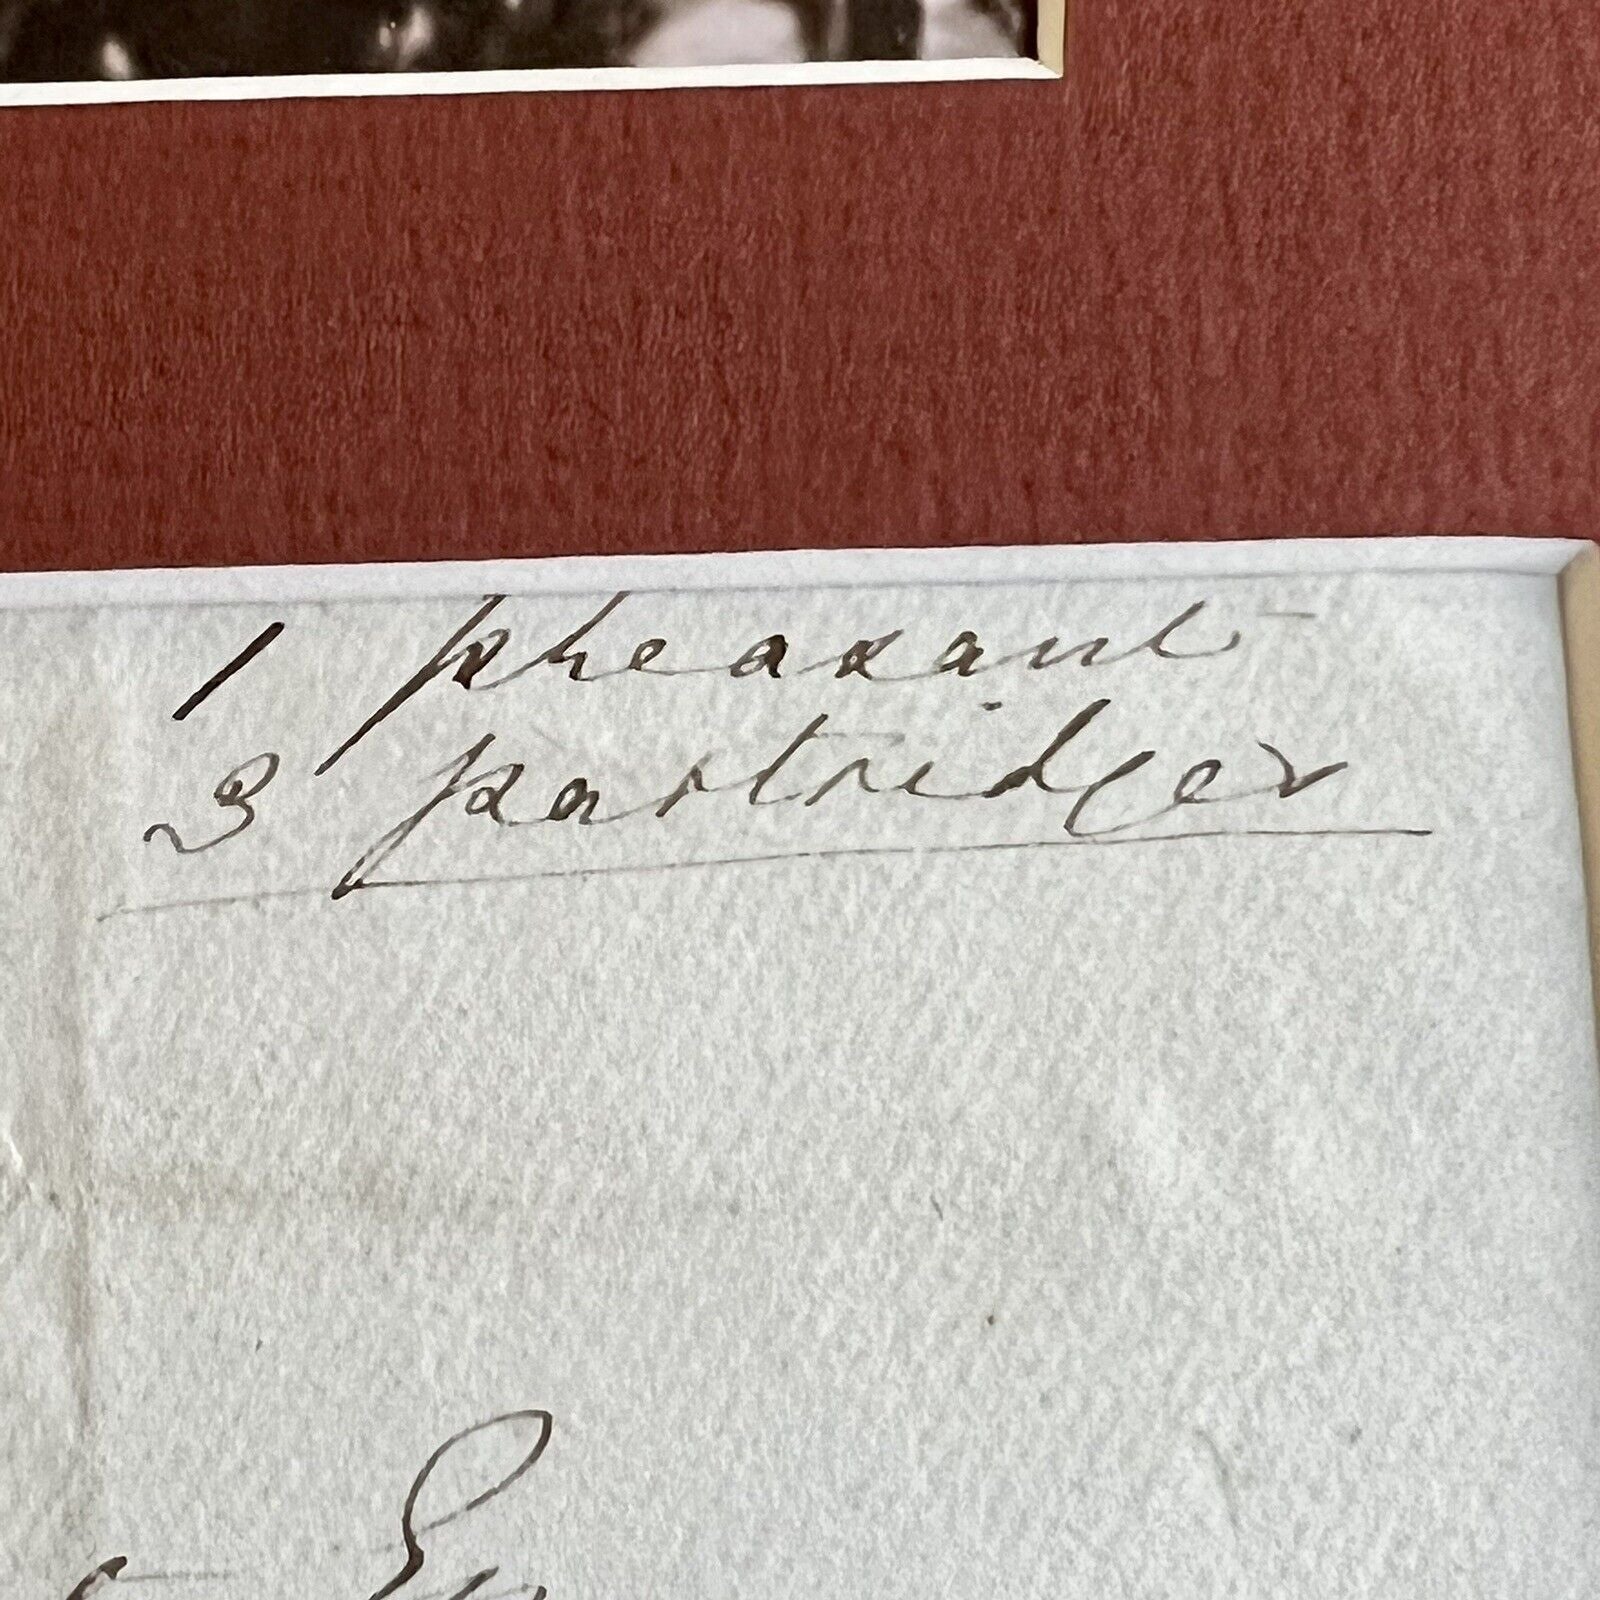 1 pheasant
3 partridges